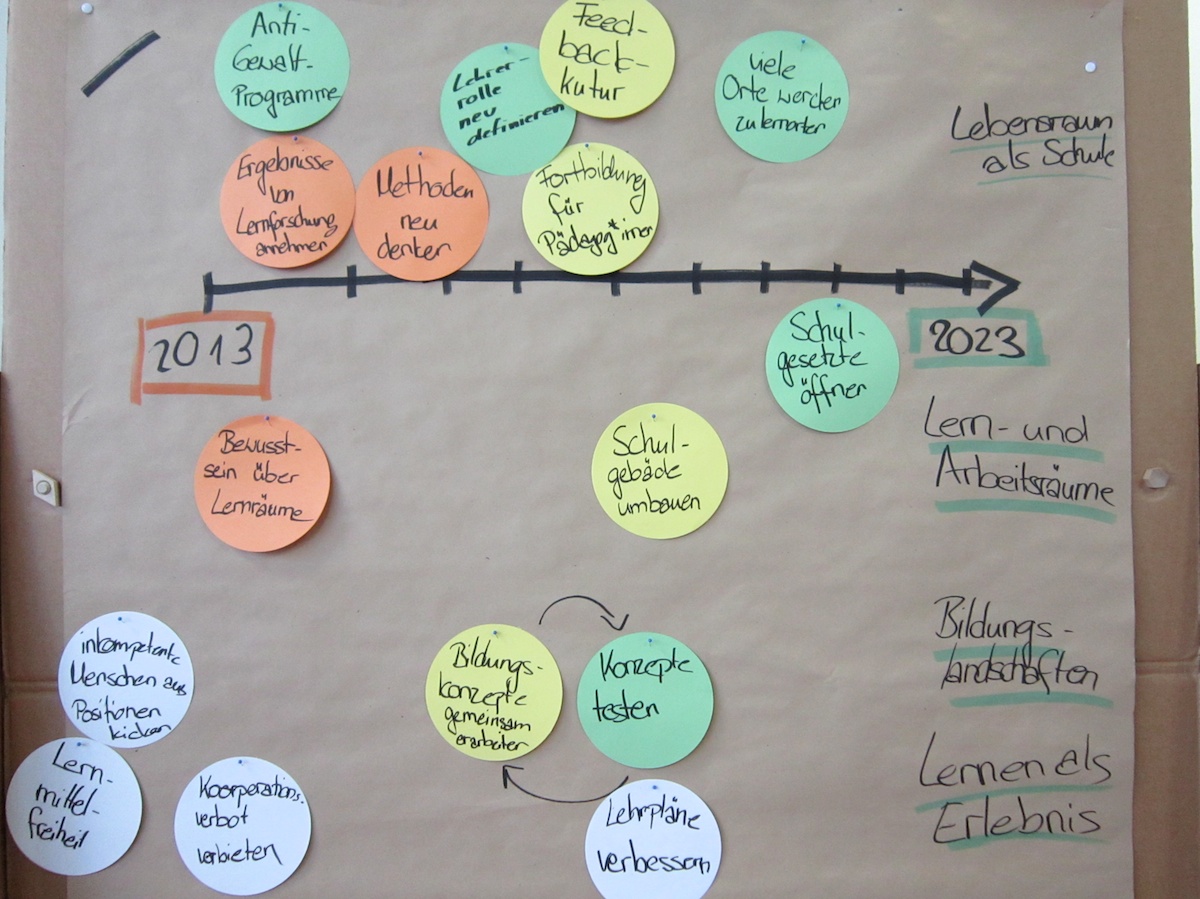 Anti-
Gewalt-
Programme
Lehrer-
rolle
neu
definieren
Feed-
back-
kutur
viele
Orte werden
zu lernorten
Lebensraum
als Schule
Ergebnisse
von
Lernforschung
annehmen
Methoden
neu
denken
Fortbildung
für
Pädagog*innen
2013
2023
Schul-
gesetzte
öffnen
Bewusst-
sein über
Lernräume
Schul-
gebäde
umbauen
Lern- und
Arbeitsräume
inkompetente
Menschen aus
Positionen
kicken
Bildungs-
konzepte
gemeinsam
erarbeiten
Konzepte
testen
Bildungs-
landschaften
Lern-
mittel-
freiheit
Kooperations-
verbot
verbieten
Lehrpläne
verbessern
Lernen als
Erlebnis